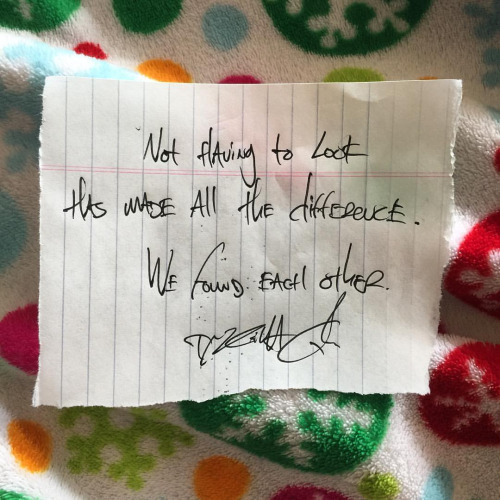 Not HAving to Look
HAs mADE All tHE diffERENCE.
WE found EACH otHER.